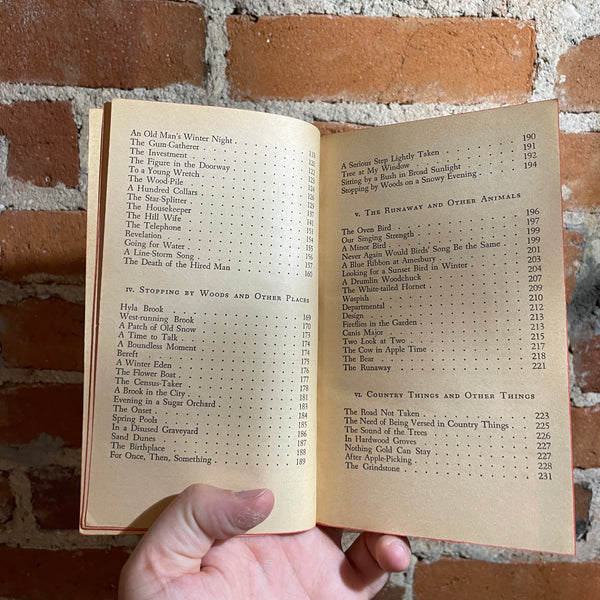 An Old Man's Winter Night 118
The Gum-Gatherer 120
The Investment
The Figure in the Doorway
To a Young Wretch
The Wood-Pile
A Hundred Collars
The Star-Splitter
The Housekeeper
The Hill Wife
The Telephone
Revelation
Going for Water
A Line-Storm Song 157
The Death of the Hired Man 160
IV. STOPPING BY WOODS AND OTHER PLACES
Hyla Brook 169
West-running Brook 170
A Patch of Old Snow 173
A Time to Talk 174
A Boundless Moment 174
Bereft 175
A Winter Eden 176
The Flower Boat 177
The Census-Taker 178
A Brook in the City 181
Evening in a Sugar Orchard 183
The Onset 184
Spring Pools 185
In a Disused Graveyard 186
Sand Dunes 187
The Birthplace 188
For Once, Then, Something 189
A Serious Step Lightly Taken 190
Tree at My Window 191
Sitting by a Bush in Broad Sunlight 192
Stopping by Woods on a Snowy Evening 194
V. THE RUNAWAY AND OTHER ANIMALS
The Oven Bird 196
Our Singing Strength 197
A Minor Bird 199
Never Again Would Birds' Song Be the Same 199
A Blue Ribbon at Amesbury 201
Looking for a Sunset Bird in Winter 203
A Drumlin Woodchuck 204
The White-tailed Hornet 207
Waspish 209
Departmental 210
Design 212
Fireflies in the Garden 213
Canis Major 213
Two Look at Two
The Cow in Apple Time 217
The Bear 218
The Runaway 221
VI. COUNTRY THINGS AND OTHER THINGS
The Road Not Taken 223
The Need of Being Versed in Country Things 225
The Sound of the Trees 226
In Hardwood Groves 227
Nothing Gold Can Stay 227
After Apple-Picking 228
The Grindstone 231